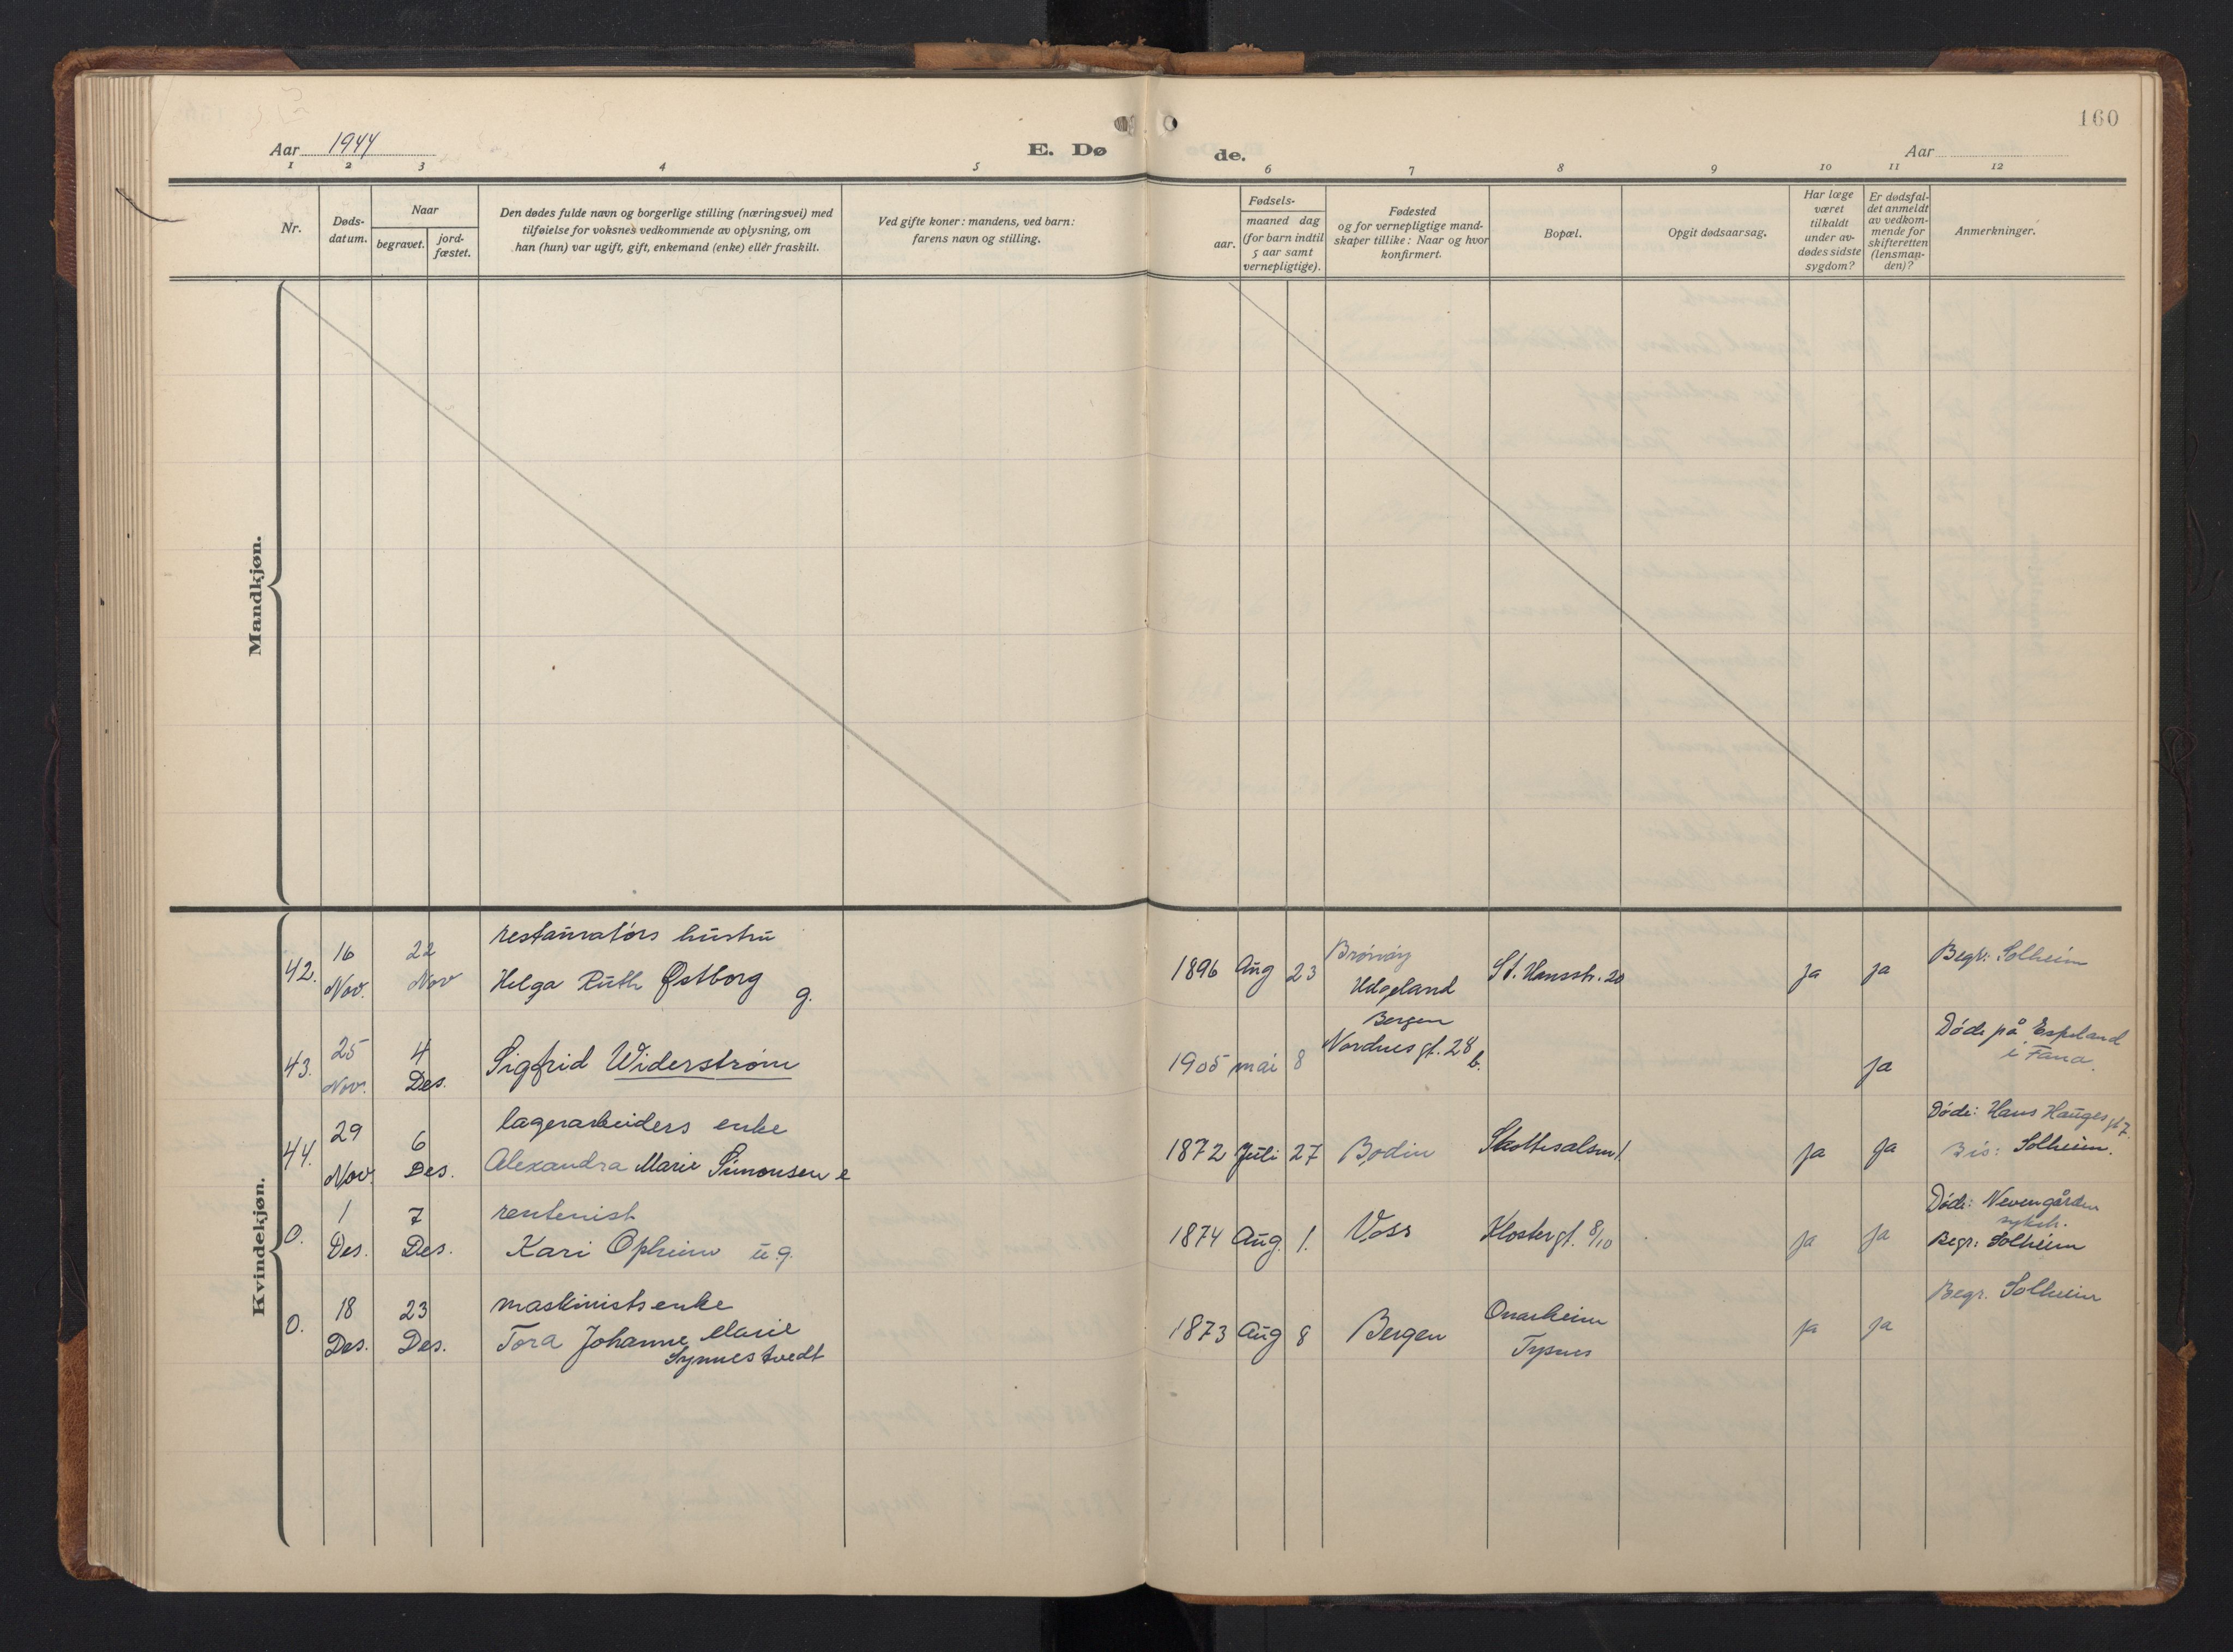 160
Aar 1944
E. Dø
de.
Aar
1 2 3 4 5 6 7 8 9 10 11 12
Nr.
Døds-
datum.
Naar
begravet.
jord-
fæstet.
Den dødes fulde navn og borgerlige stilling (næringsvei) med
tilføielse for voksnes vedkommende av oplysning, om
han (hun) var ugift, gift, enkemand (enke) eller fraskilt.
Ved gifte koner: mandens, ved barn:
farens navn og stilling.
Fødsels-
aar.
maaned dag
(for barn indtil
5 aar samt
vernepligtige).
Fødested
og for vernepligtige mand-
skaper tillike: Naar og hvor
konfirmert.
Bopæl.
Opgit dødsaarsag.
Har læge
været
tilkaldt
under av-
dødes sidste
sygdom?
Er dødsfal-
det anmeldt
av vedkom-
mende for
skifteretten
(lensman-
den)?
Anmerkninger.
Mandkjøn.
Kvindekjøn.
42.
16
Nov.
22
Nov
restauratørs hustru
Helga Ruth Østborg g.
1896 Aug 23
Brönöy
Helgeland
St. Hansstr. 20
ja
ja
Begr: Solheim
43.
25
Nov.
4
Des.
Sigfrid Widerstrøm
1905 mai 8
Bergen
Nordnes gt. 28
b.
ja
Døde på Espeland
i Fana.
44.
29
Nov.
6
Des.
lagerarbeiders enke
Alexandra Marie Simonsen e
1872 Juli 27
Bodin
ja
ja
Døde: Hans Hauges gt 7.
Bis: Solheim.
0.
1
Des.
7
Des.
rentenist
Kari Opheim u.g.
1874 Aug. 1.
Voss
Klostergt. 8/10
ja
ja
Døde: Nevengården
sykeh.
Begr: Solheim
0.
18
Des.
23
Des.
maskinistsenke
Tora Johanne Marie
Synnestvedt
1873 Aug 8
Bergen
Onarheim
Tysnes
ja
ja
Begr. Solheim